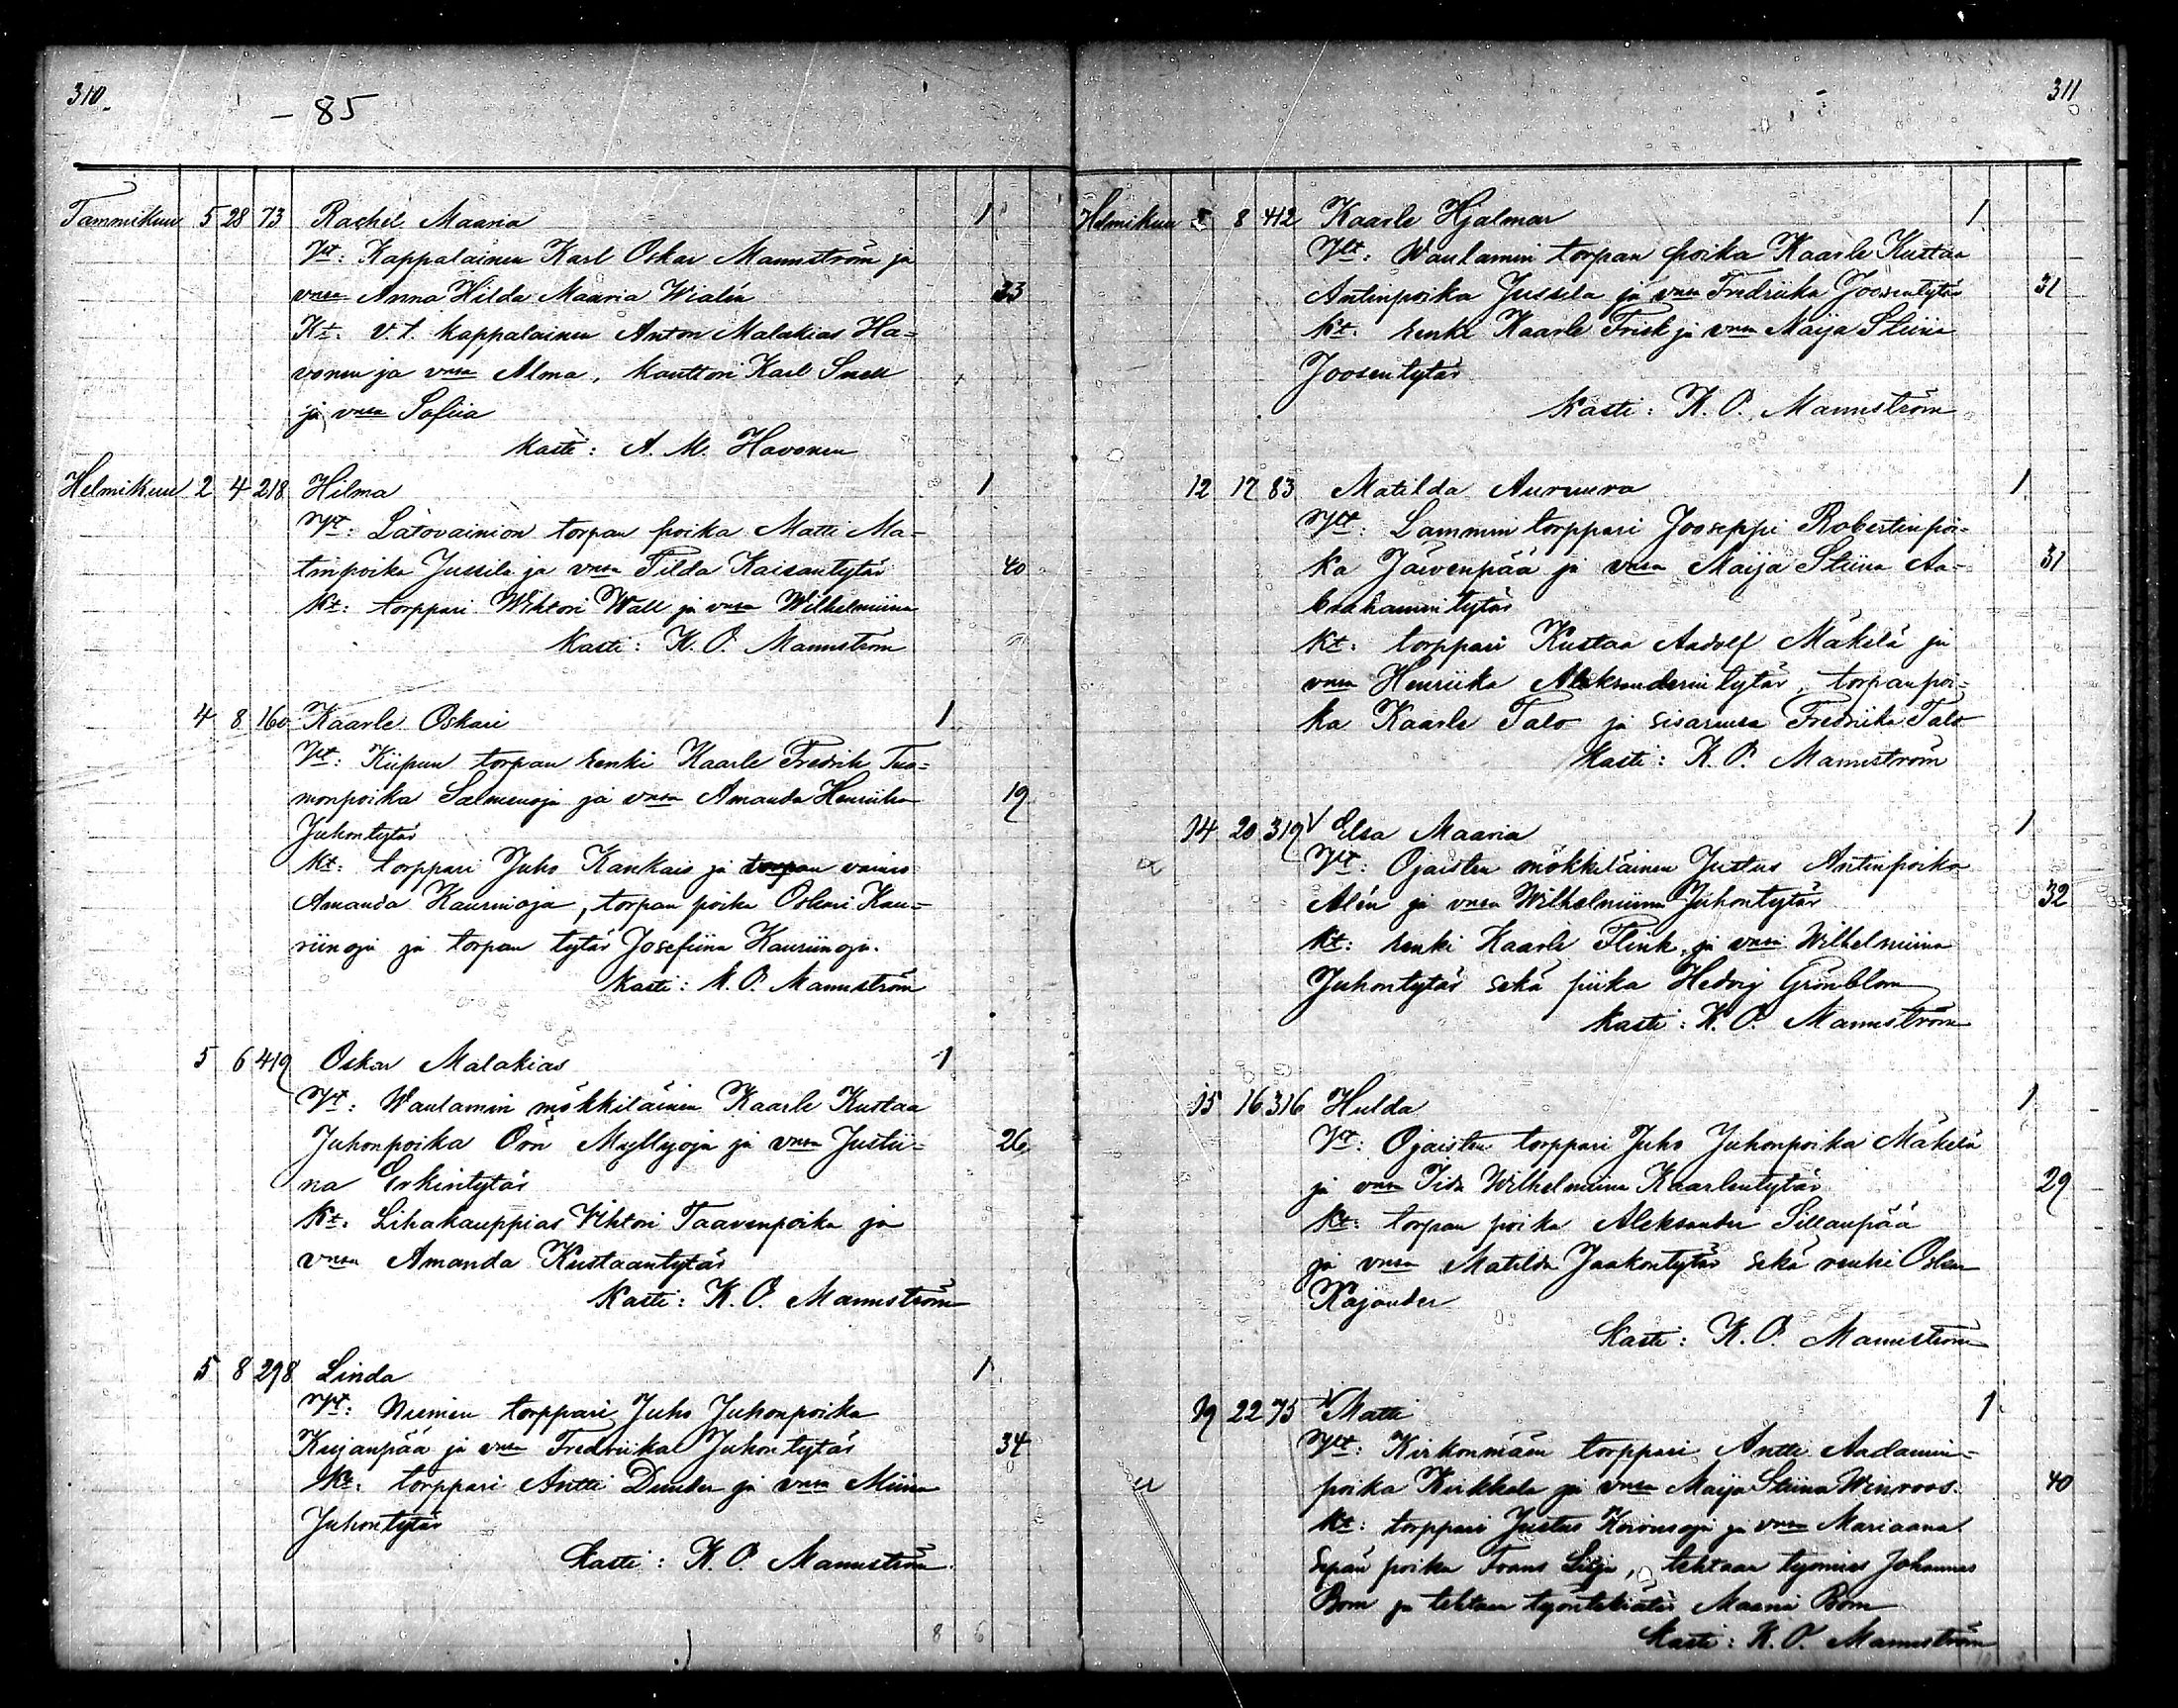 310.
- 85
Tammikuu 5 28 73 Rachel Maaria 1
Vt: Kappalainen Karl Oskar Mannström ja
vmsa Anna Hilda Maaria Wialén 33
Kt: v.t. kappalainen Anton Malakias Ha=
vonen ja vmsa Alma, kanttori Karl Snell
ja vmsa Sofiia
Kasti: A. M. Havonen
Helmikuu 2 4 218 Hilma 1
Vt: Latovainion torpan poika Matti Ma=
tinpoika Jussila ja vmsa Tilda Kaisantytär 40
Kt: torppari Wihtori Wall ja vmsa Wilhelmiina
Kasti: K. O. Mannström
4 8 160 Kaarle Oskari 1
Vt: Kiipun torpan renki Kaarle Fredrik Tuo=
monpoika Salmenoja ja vmsa Amanda Henriika 19
Juhontytär
Kt: torppari Juho Kankais ja torpan vaimo
Amanda Kauriinoja, torpan poika Oskari Kau=
riinoja ja torpan tytär Josefiina Kauriinoja.
Kasti: K. O. Mannström
5 6 419 Oskar Malakias 1
Vt: Waulamin mökkiläinen Kaarle Kustaa
Juhonpoika Öön Myllyoja ja vmsa Justii= 26
na Erkintytär
Kt: Lihakauppias Vihtori Taavenpoika ja
vmsa Amanda Kustaantytär
Kasti: K. O. Mannström
5 8 298 Linda 1
Vt: Niemen torppari Juho Juhonpoika
Kujanpää ja vmsa Fredriika Juhontytär 34
Kt: torppari Antti Dunder ja vmsa Miina
Juhontytär
Kasti: K. O. Mannström
8 6
311
Helmikuu 5 8 412 Kaarle Hjalmar 1
Vt: Waulamin torpan poika Kaarle Kustaa
Antinpoika Jussila ja vmsa Fredriika Joosentytär 31
Kt: renki Kaarle Frisk ja vmsa Maija Stiina
Joosentytär
Kasti: K. O. Mannström
12 17 83 Matilda Auruura 1
Vt: Lammin torppari Jooseppi Robertinpoi=
ka Järvenpää ja vmsa Maija Stiina Aa= 31
brahamintytär
Kt: torppari Kustaa Aadolf Mäkelä ja
vmsa Henriika Aleksanderintytär, torpanpoi=
ka Kaarle Talo ja sisarensa Fredriika Talo
Kasti: K. O. Mannström
14 20 319 Elsa Maaria 1
Vt: Ojaisten mökkiläinen Justus Antinpoika
Alén ja vmsa Wilhelmiina Juhontytär 32
Kt: renki Kaarle Flink ja vmsa Wilhelmiina
Juhontytär sekä piika Hedvig Grönblom
Kasti: K. O. Mannström
15 16 316 Hulda 1
Vt: Ojaisten torppari Juho Juhonpoika Mäkelä
ja vmsa Iida Wilhelmiina Kaarlentytär 29
Kt: torpan poika Aleksander Sillanpää
ja vmsa Matilda Jaakontytär sekä renki Oskar
Kajander
Kasti: K. O. Mannström
19 22 75 Matti 1
Vt: Kirkonmäen torppari Antti Aadamin=
poika Kirkkala ja vmsa Maija Stiina Winroos. 40
Kt: torppari Justus ja vmsa Mariaana
Sepän poika Frans Silja, tehtaan työmies Johannes
Bom ja tehtaan työntekiätär Maaria Bom
Kasti: K. O. Mannström